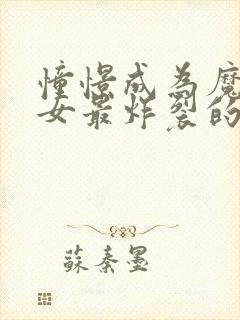 憧憬成为魔
女最炸裂的
蘇秦墨